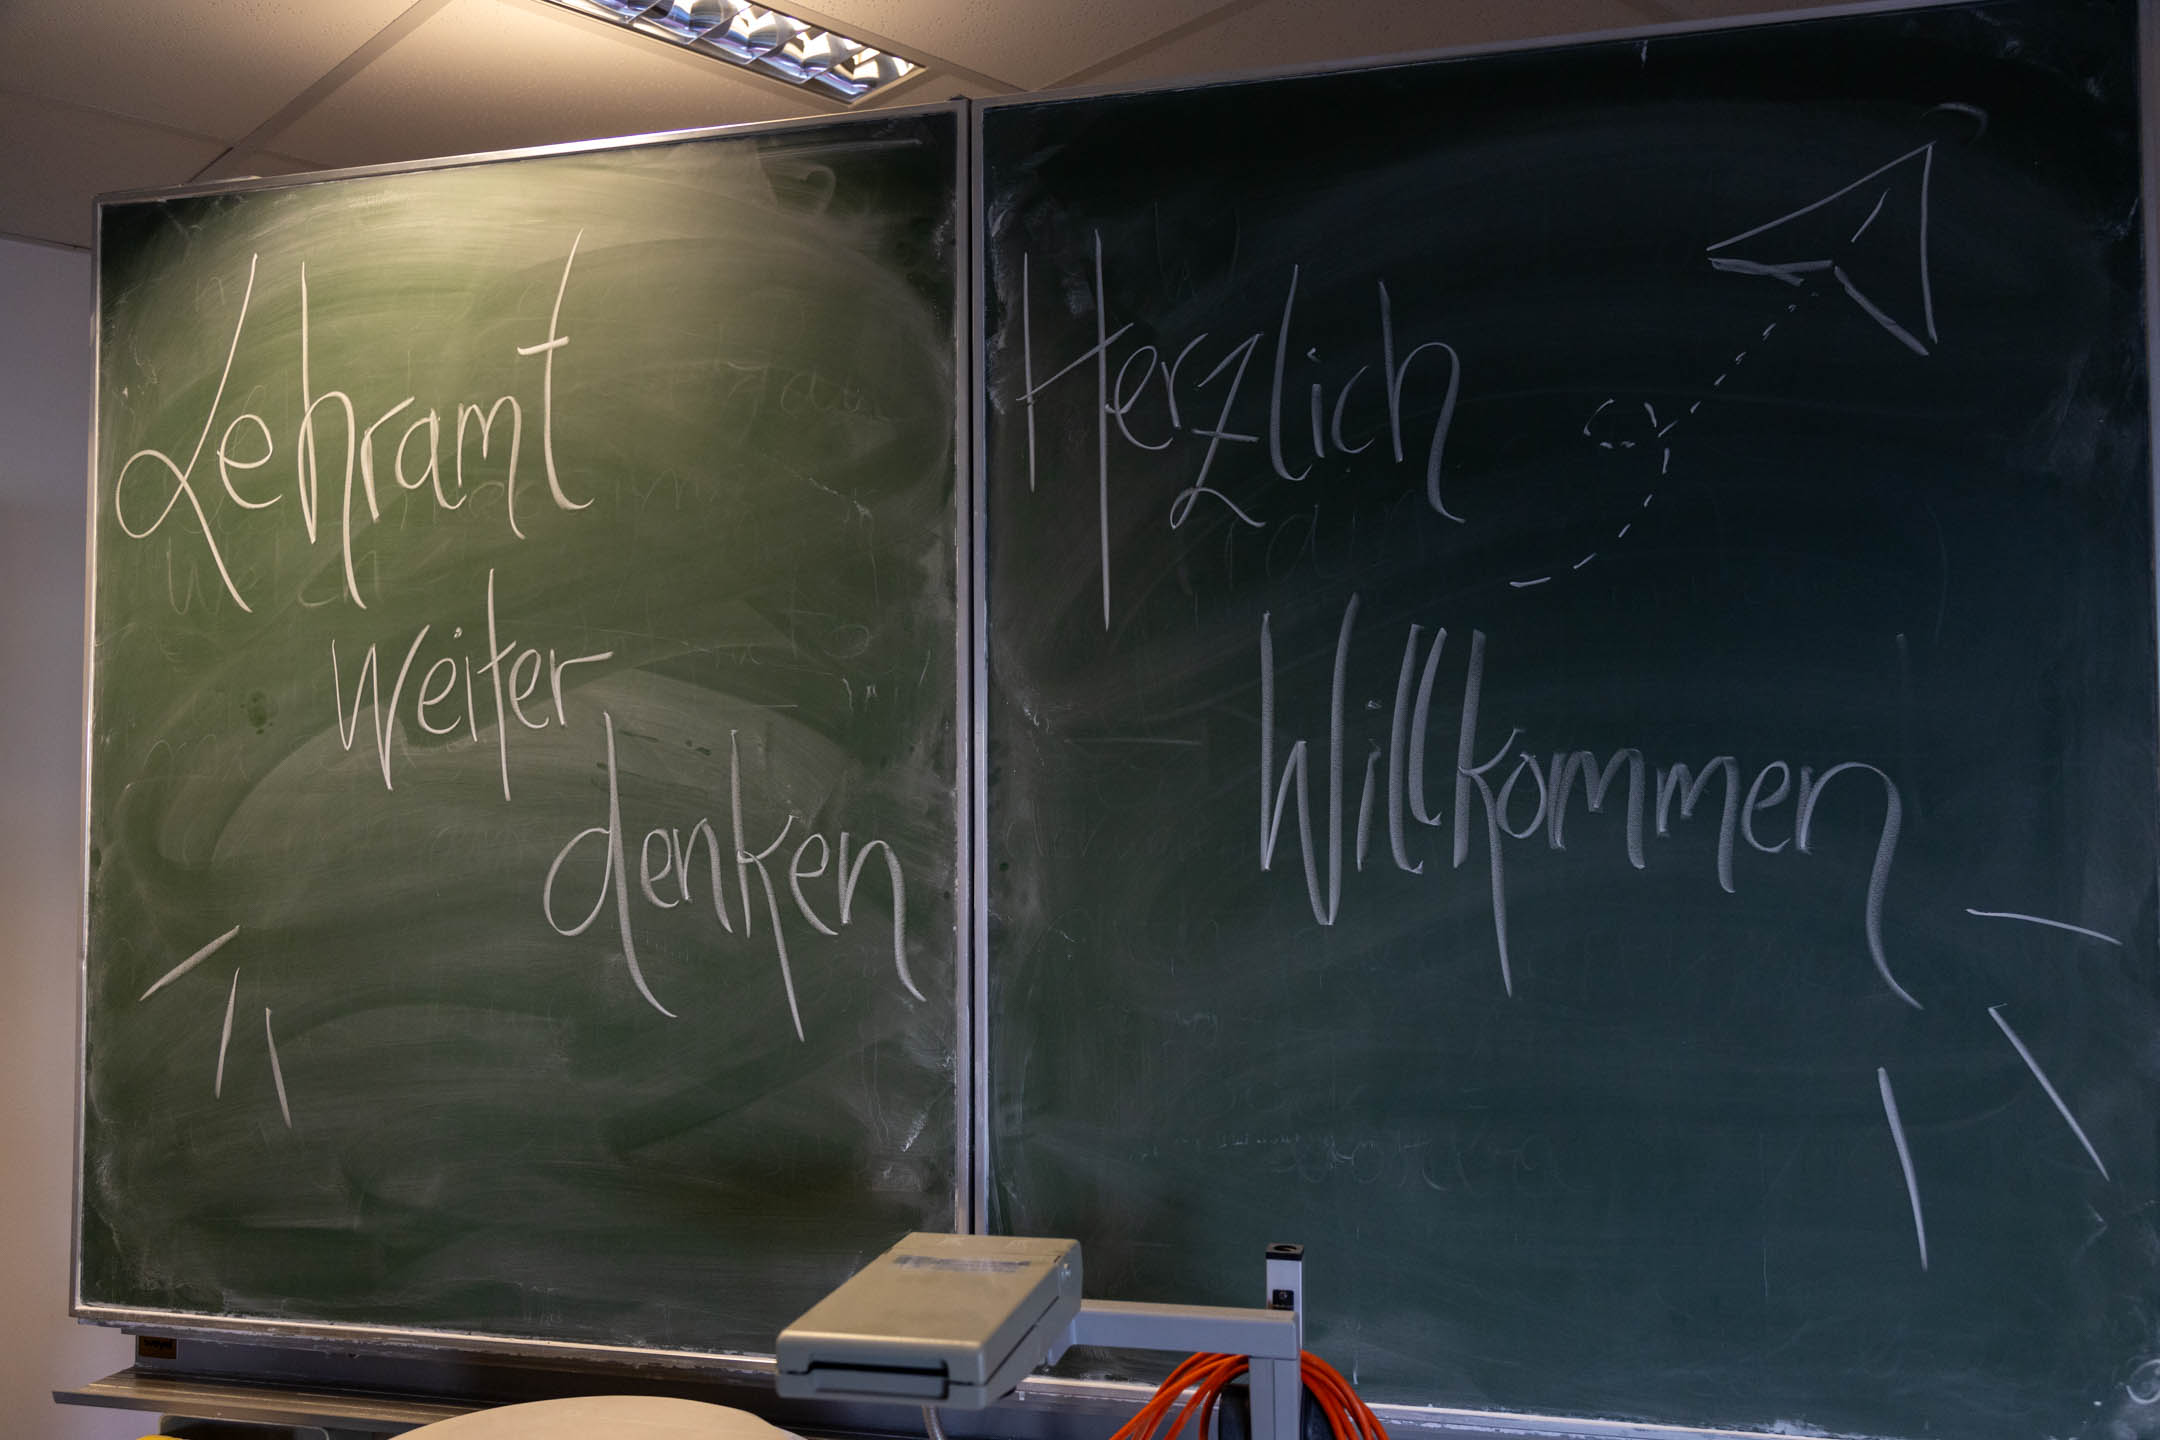 Lehramt
weiter
denken
Herzlich
Willkommen